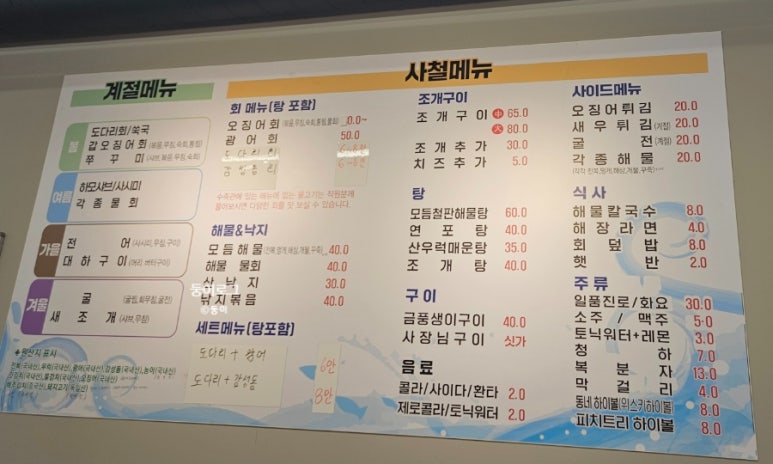 계절메뉴
봄
도다리회/쑥국
갑오징어회 (볶음,무침,숙회,통찜)
쭈꾸미 (샤브,볶음,무침,숙회)
여름
하모샤브/사시미
각종물회
가을
전어 (사시미,무침,구이)
대하구이 (머리 버터구이)
겨울
굴 (굴찜,회무침,굴전)
새조개 (샤브,무침)
+원산지 표시
사철메뉴
회 메뉴(탕 포함)
오징어회 (볶음,무침,숙회,통찜,물회) 0.0~
광어회 50.0
도다리
감성돔
수족관에 있는 메뉴에 없는 물고기는 직원분께
물어보시면 다양한 회를 맛 보실 수 있습니다.
해물&낙지
모듬해물 (전복,멍게,해삼,개불,꾸죽) 40.0
해물 물회 40.0
산낙지 30.0
낙지볶음 40.0
둥이로그
©둥이
세트메뉴(탕포함)
도다리 + 광어 6만
도다리 + 감성돔 8만
조개구이
조개구이 小 65.0
大 80.0
조개추가 30.0
치즈추가 5.0
탕
모듬철판해물탕 60.0
연포탕 40.0
산우럭매운탕 35.0
조개탕 40.0
구이
금풍생이구이 40.0
사장님구이 싯가
음료
콜라/사이다/환타 2.0
제로콜라/토닉워터 2.0
사이드메뉴
오징어튀김 20.0
새우튀김 (계절) 20.0
굴전 (계절) 20.0
각종해물 20.0
식사
해물칼국수 8.0
해장라면 4.0
회덮밥 8.0
햇반 2.0
주류
일품진로/화요 30.0
소주/맥주 5.0
토닉워터+레몬 3.0
청하 7.0
복분자 13.0
막걸리 4.0
동네 하이볼(위스키하이볼) 8.0
피치트리 하이볼 8.0